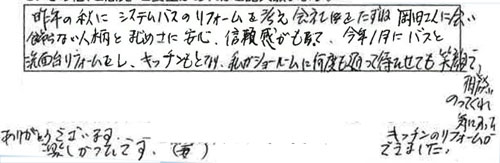 昨年の秋に システムバスのリフォームを考え 会社に伺えたずね 岡田さんに会い
飾らない人柄と まじめさに安心、信頼感がもてて、今年1月にバスと
洗面台リフォームをし、キッチンもとなり、私がショールームに何度も迷って待たせても 笑顔で、
相談に
のってくれ
気に入った
キッチンのリフォームが
できました。
ありがとうございます。
楽しかったです。(妻)